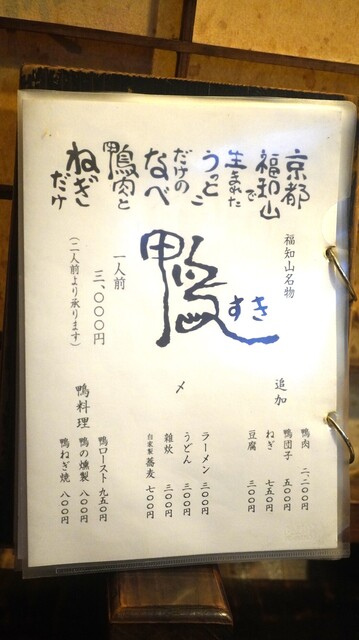 京都
福知山
で
生まれた
うっとこ
だけの
なべ
鴨肉と
ねぎ
だけ
福知山名物
鴨すき
一人前
三、〇〇〇円
(二人前より承ります)
追加
鴨肉 二、二〇〇円
鴨団子 五〇〇円
ねぎ 七五〇円
豆腐 三〇〇円
〆
ラーメン 三〇〇円
うどん 三〇〇円
雑炊 三〇〇円
自家製蕎麦 七〇〇円
鴨料理
鴨ロースト 九五〇円
鴨の燻製 八〇〇円
鴨ねぎ焼 八〇〇円